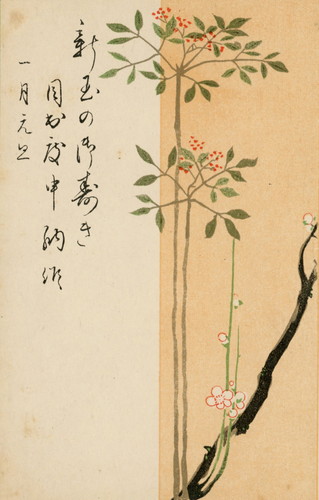 新玉の御寿き
目出度申納候
一月元旦